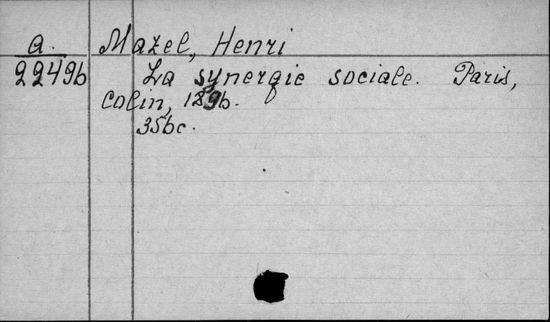 a. Mazel, Henri
22496 La synergie sociale. Paris,
Colin, 1896.
356c.